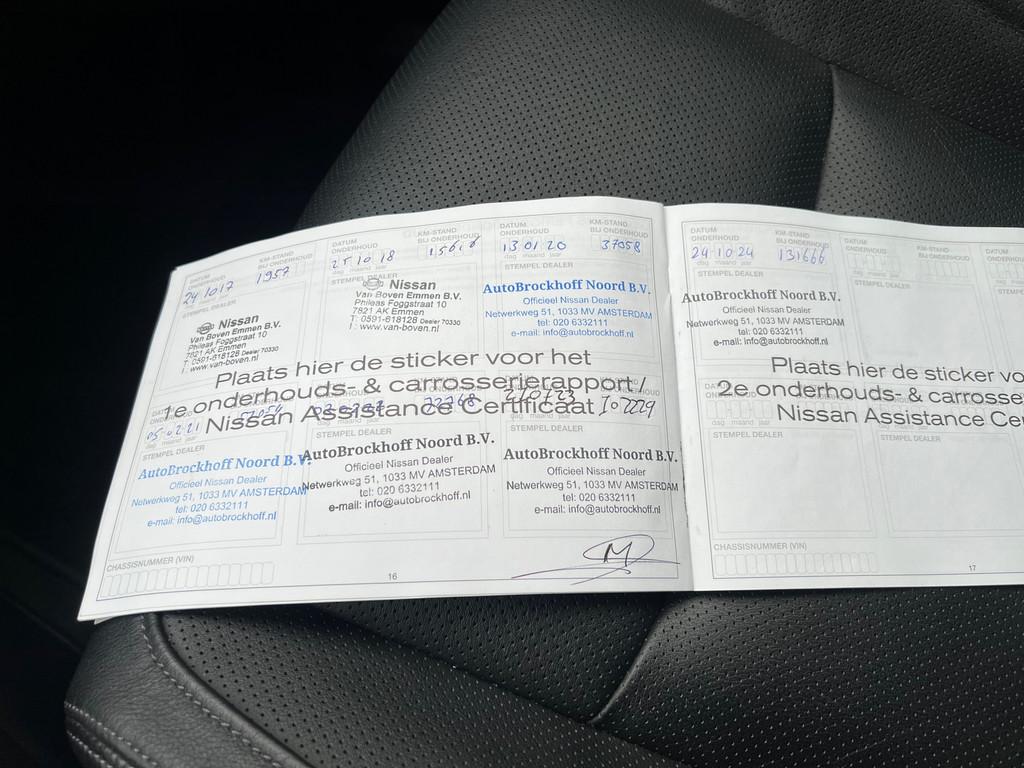 DATUM ONDERHOUD
KM-STAND BIJ ONDERHOUD
24 10 17
1957
dag maand jaar
STEMPEL DEALER
Nissan
Van Boven Emmen B.V.
Phileas Foggstraat 10
7821 AK Emmen
T: 0591-618128 Dealer 70330
I : www.van-boven.nl
DATUM ONDERHOUD
KM-STAND BIJ ONDERHOUD
25 10 18
15616
dag maand jaar
STEMPEL DEALER
Nissan
Van Boven Emmen B.V.
Phileas Foggstraat 10
7821 AK Emmen
T: 0591-618128 Dealer 70330
I : www.van-boven.nl
DATUM ONDERHOUD
KM-STAND BIJ ONDERHOUD
13 01 20
37058
dag maand jaar
STEMPEL DEALER
AutoBrockhoff Noord B.V.
Officieel Nissan Dealer
Netwerkweg 51, 1033 MV AMSTERDAM
tel: 020 6332111
e-mail: info@autobrockhoff.nl
Plaats hier de sticker voor het
1e onderhouds- & carrosserierapport /
Nissan Assistance Certificaat
05 02 21
dag maand jaar
STEMPEL DEALER
AutoBrockhoff Noord B.V.
Officieel Nissan Dealer
Netwerkweg 51, 1033 MV AMSTERDAM
tel: 020 6332111
e-mail: info@autobrockhoff.nl
72268
dag maand jaar
STEMPEL DEALER
AutoBrockhoff Noord B.V.
Officieel Nissan Dealer
Netwerkweg 51, 1033 MV AMSTERDAM
tel: 020 6332111
e-mail: info@autobrockhoff.nl
STEMPEL DEALER
AutoBrockhoff Noord B.V.
Officieel Nissan Dealer
Netwerkweg 51, 1033 MV AMSTERDAM
tel: 020 6332111
e-mail: info@autobrockhoff.nl
CHASSISNUMMER (VIN)
16
DATUM ONDERHOUD
KM-STAND BIJ ONDERHOUD
24 10 24
131666
dag maand jaar
STEMPEL DEALER
AutoBrockhoff Noord B.V.
Officieel Nissan Dealer
Netwerkweg 51, 1033 MV AMSTERDAM
tel: 020 6332111
e-mail: info@autobrockhoff.nl
DATUM ONDERHOUD
KM-STAND BIJ ONDERHOUD
dag maand jaar
STEMPEL DEALER
Plaats hier de sticker vo
2e onderhouds- & carrosse
Nissan Assistance Cer
dag maand jaar
STEMPEL DEALER
STEMPEL DEALER
CHASSISNUMMER (VIN)
17